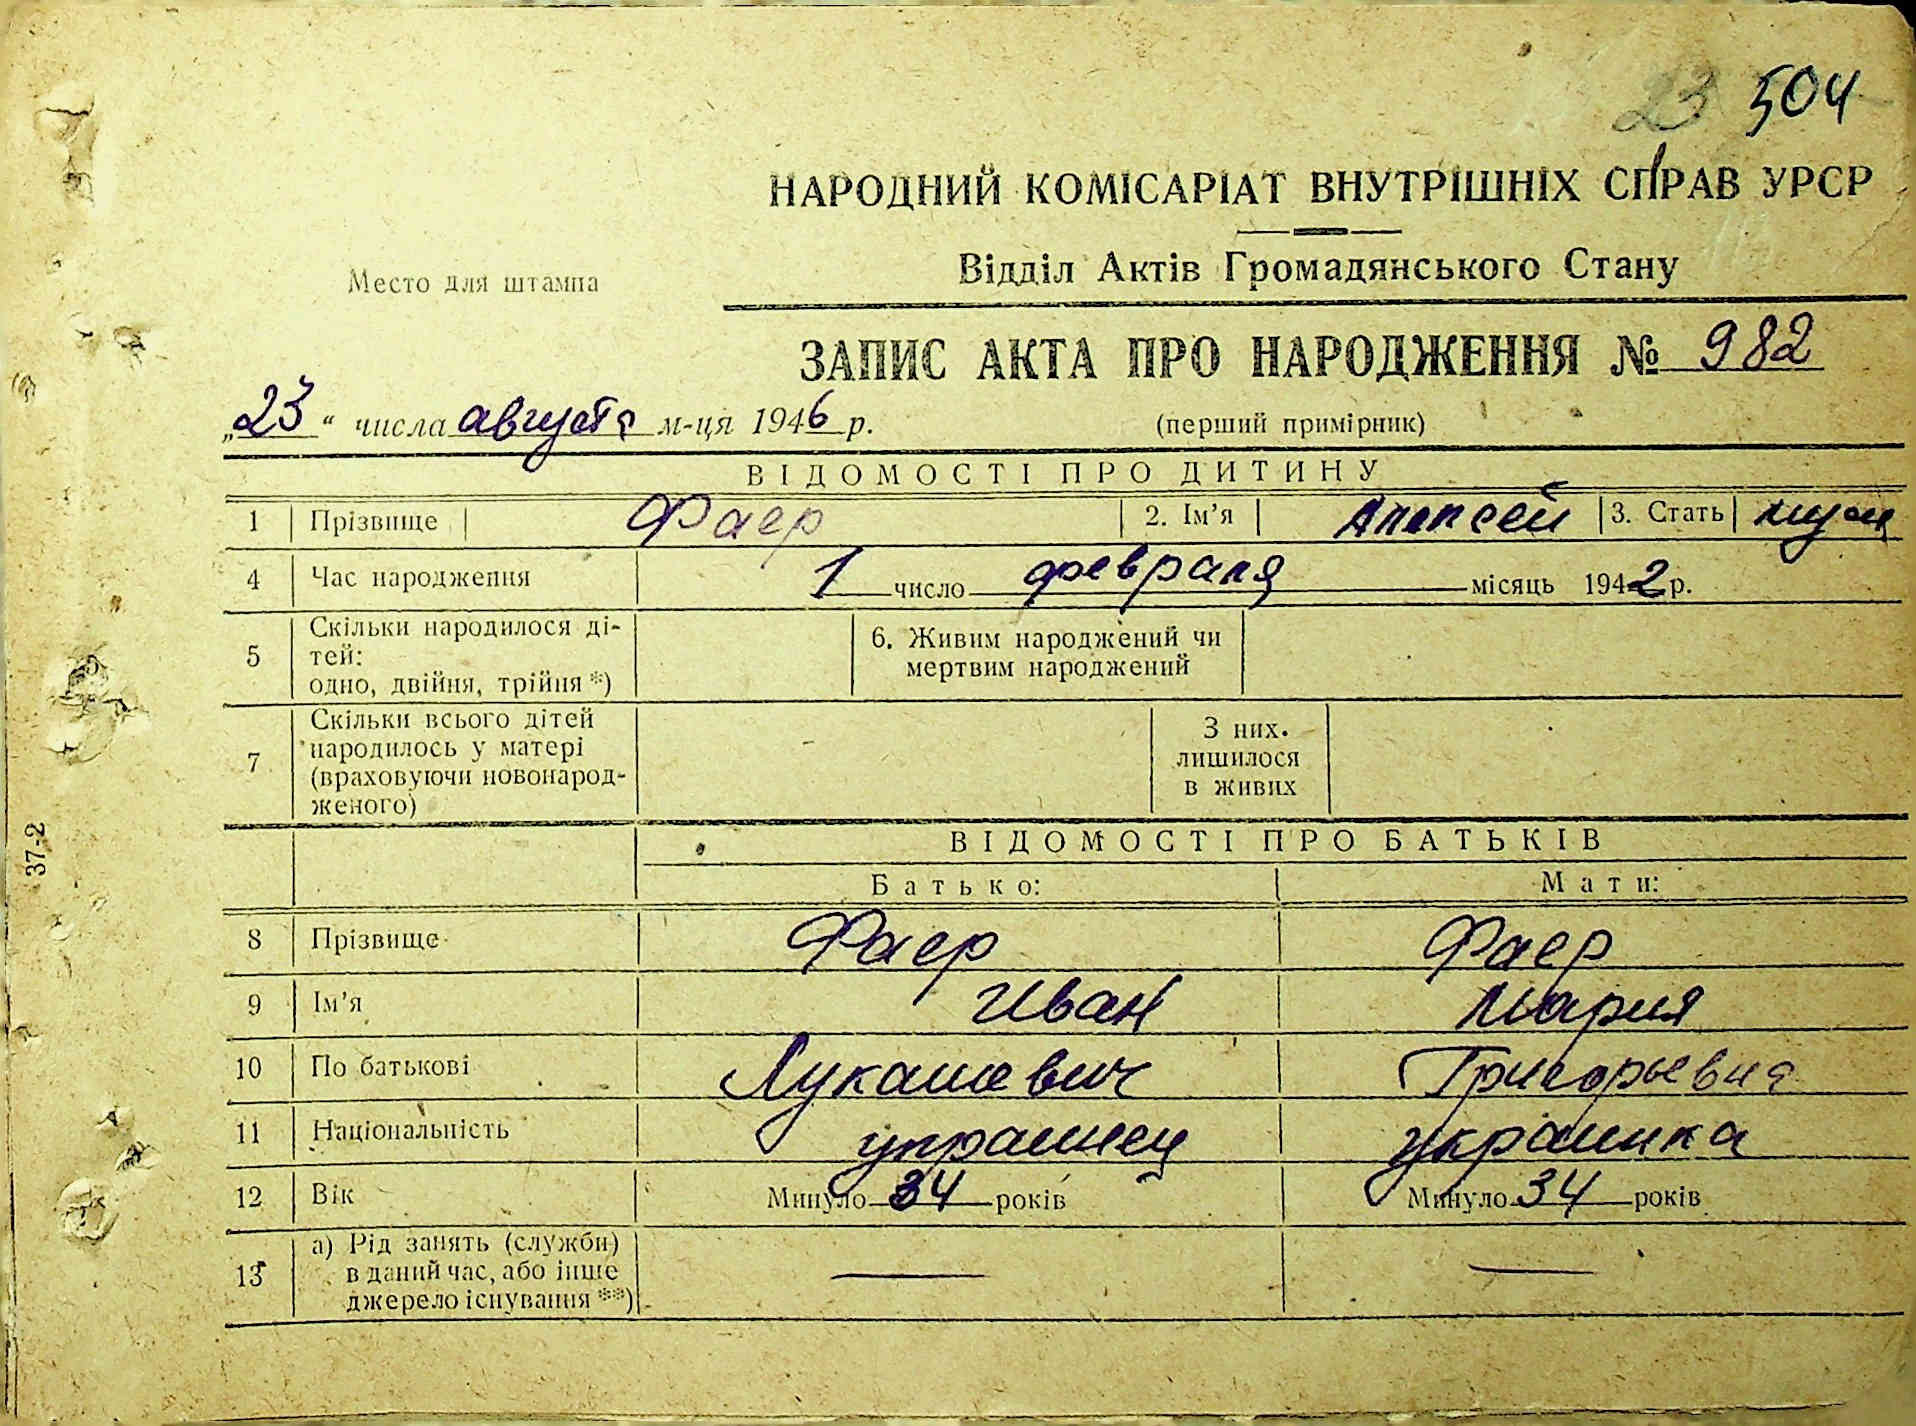 23 504
НАРОДНИЙ КОМІСАРІАТ ВНУТРІШНІХ СПРАВ УРСР
Відділ Актів Громадянського Стану
Место для штампа
ЗАПИС АКТА ПРО НАРОДЖЕННЯ № 982
„23“ числа августа м-ця 1946 р. (перший примірник)
ВІДОМОСТІ ПРО ДИТИНУ
1 Прізвище Фаер 2. Ім'я Алексей 3. Стать муж
4 Час народження 1 число февраля місяць 1942 р.
5 Скільки народилося ді-
тей:
одно, двійня, трійня *)
6. Живим народжений чи
мертвим народжений
7 Скільки всього дітей
народилось у матері
(враховуючи новонарод-
женого)
З них
лишилося
в живих
37-2
ВІДОМОСТІ ПРО БАТЬКІВ
Батько: Мати:
8 Прізвище Фаер Фаер
9 Ім'я Иван Мария
10 По батькові Лукашевич Григорьевна
11 Національність украинец украинка
12 Вік Минуло 34 років Минуло 34 років
13 а) Рід занять (служби)
в даний час, або інше
джерело існування **) — —